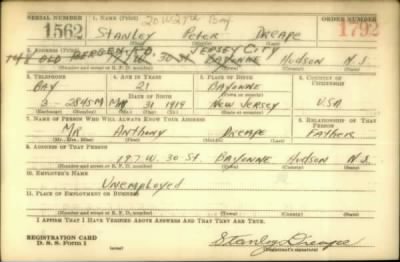 SERIAL NUMBER 1. NAME (Print) 20 W 27th Bay ORDER NUMBER
1562 Stanley Peter Dreape 1792
(First) (Middle) (Last)
2. ADDRESS (Print) JERSEY CITY
148 OLD BERGEN RD. W. 30 St BAYONNE Hudson N.J.
(Number and street or R. F. D. number) (Town) (County) (State)
3. TELEPHONE 4. AGE IN YEARS 5. PLACE OF BIRTH 6. COUNTRY OF CITIZENSHIP
BAY 21 BAYONNE
DATE OF BIRTH (Town or county)
3-2845M 31 1919 NEW JERSEY USA
(Exchange) (Number) (Mo.) (Day) (Yr.) (State or country)
7. NAME OF PERSON WHO WILL ALWAYS KNOW YOUR ADDRESS 8. RELATIONSHIP OF THAT PERSON
MR Anthony Dreape FATHER
(Mr., Mrs., Miss) (First) (Middle) (Last)
9. ADDRESS OF THAT PERSON
197 W. 30 St. BAYONNE Hudson N.J.
(Number and street or R. F. D. number) (Town) (County) (State)
10. EMPLOYER'S NAME
Unemployed
11. PLACE OF EMPLOYMENT OR BUSINESS
(Number and street or R. F. D. number) (Town) (County) (State)
I AFFIRM THAT I HAVE VERIFIED ABOVE ANSWERS AND THAT THEY ARE TRUE.
REGISTRATION CARD
D. S. S. Form 1 (over) Stanley Dreape
(Registrant's signature)